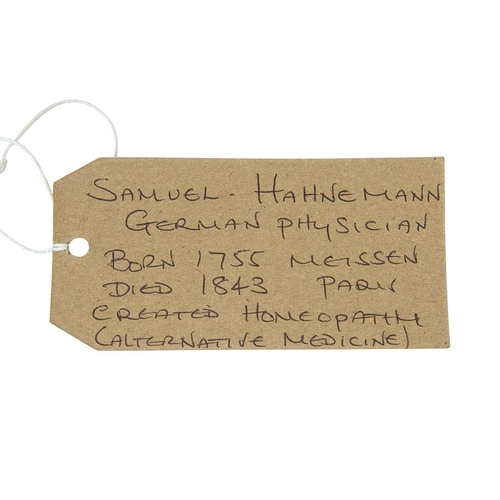 SAMUEL. HAHNEMANN
GERMAN PHYSICIAN
BORN 1755 MEISSEN
DIED 1843 PARIS
CREATED HOMEOPATHY
(ALTERNATIVE MEDICINE)